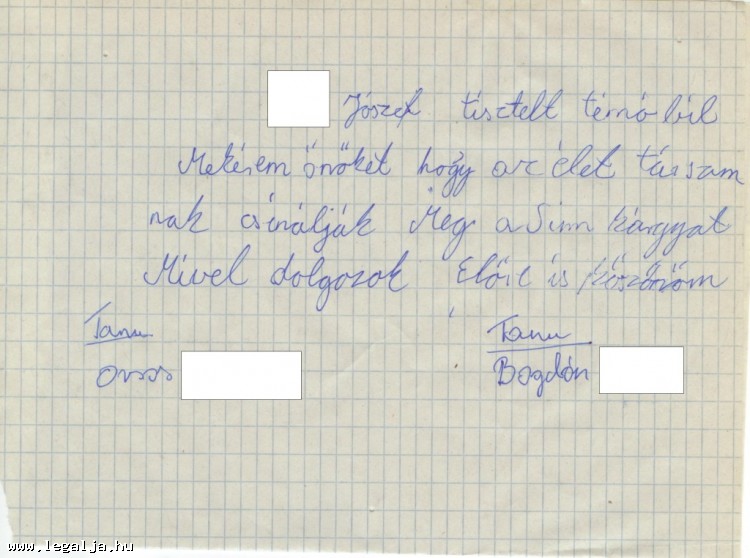 József tisztelt térnő ból
Mekérem önöket hogy az élet társam
nak csinálják Meg a Sim kárgyat
Mivel dolgozok Előre is köszönöm
Tanu Tanu
Orsos Bogdón
www.legalja.hu